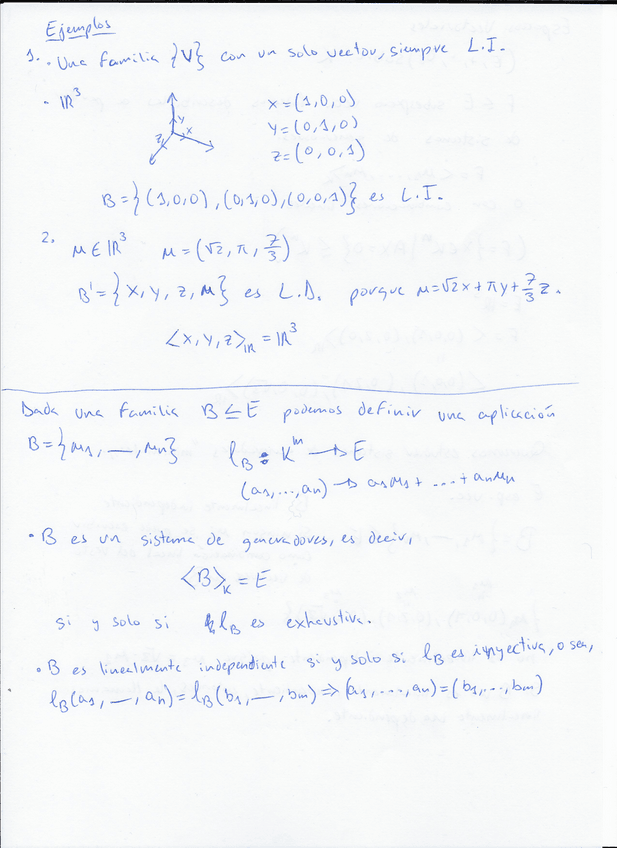 Ejemplos
1. · Una familia {V} con un solo vector, siempre L.I.
· IR³
x = (1,0,0)
y = (0,1,0)
z = (0,0,1)
Y
X
Z
B = {(1,0,0), (0,1,0), (0,0,1)} es L.I.
2. μ ∈ IR³ μ = (√2, π, 7/3)
B' = {x, y, z, μ} es L.D. porque μ = √2x + πy + 7/3 z.
<x, y, z>_IR = IR³
Dada una familia B ⊆ E podemos definir una aplicación
B = {μ1, —, μn} l_B : K^m → E
(a1, ..., an) → a1μ1 + ... + anμn
· B es un sistema de generadores, es decir,
<B>_K = E
si y solo si l_B es exhaustiva.
· B es linealmente independiente si y solo si l_B es inyectiva, o sea,
l_B(a1, —, an) = l_B(b1, —, bm) => (a1, ..., an) = (b1, ..., bm)